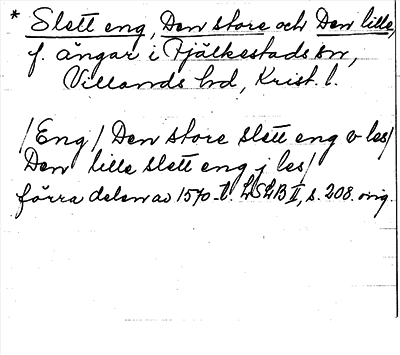 * Slett eng, Den store och Den lille,
f. ängar i Fjälkestads sn,
Villands hd, Krist. l.
/Eng/ Den store slett eng o les/
Den lille slett eng j les/
förra delen av 1570-t. LSLB II, s. 208. orig.